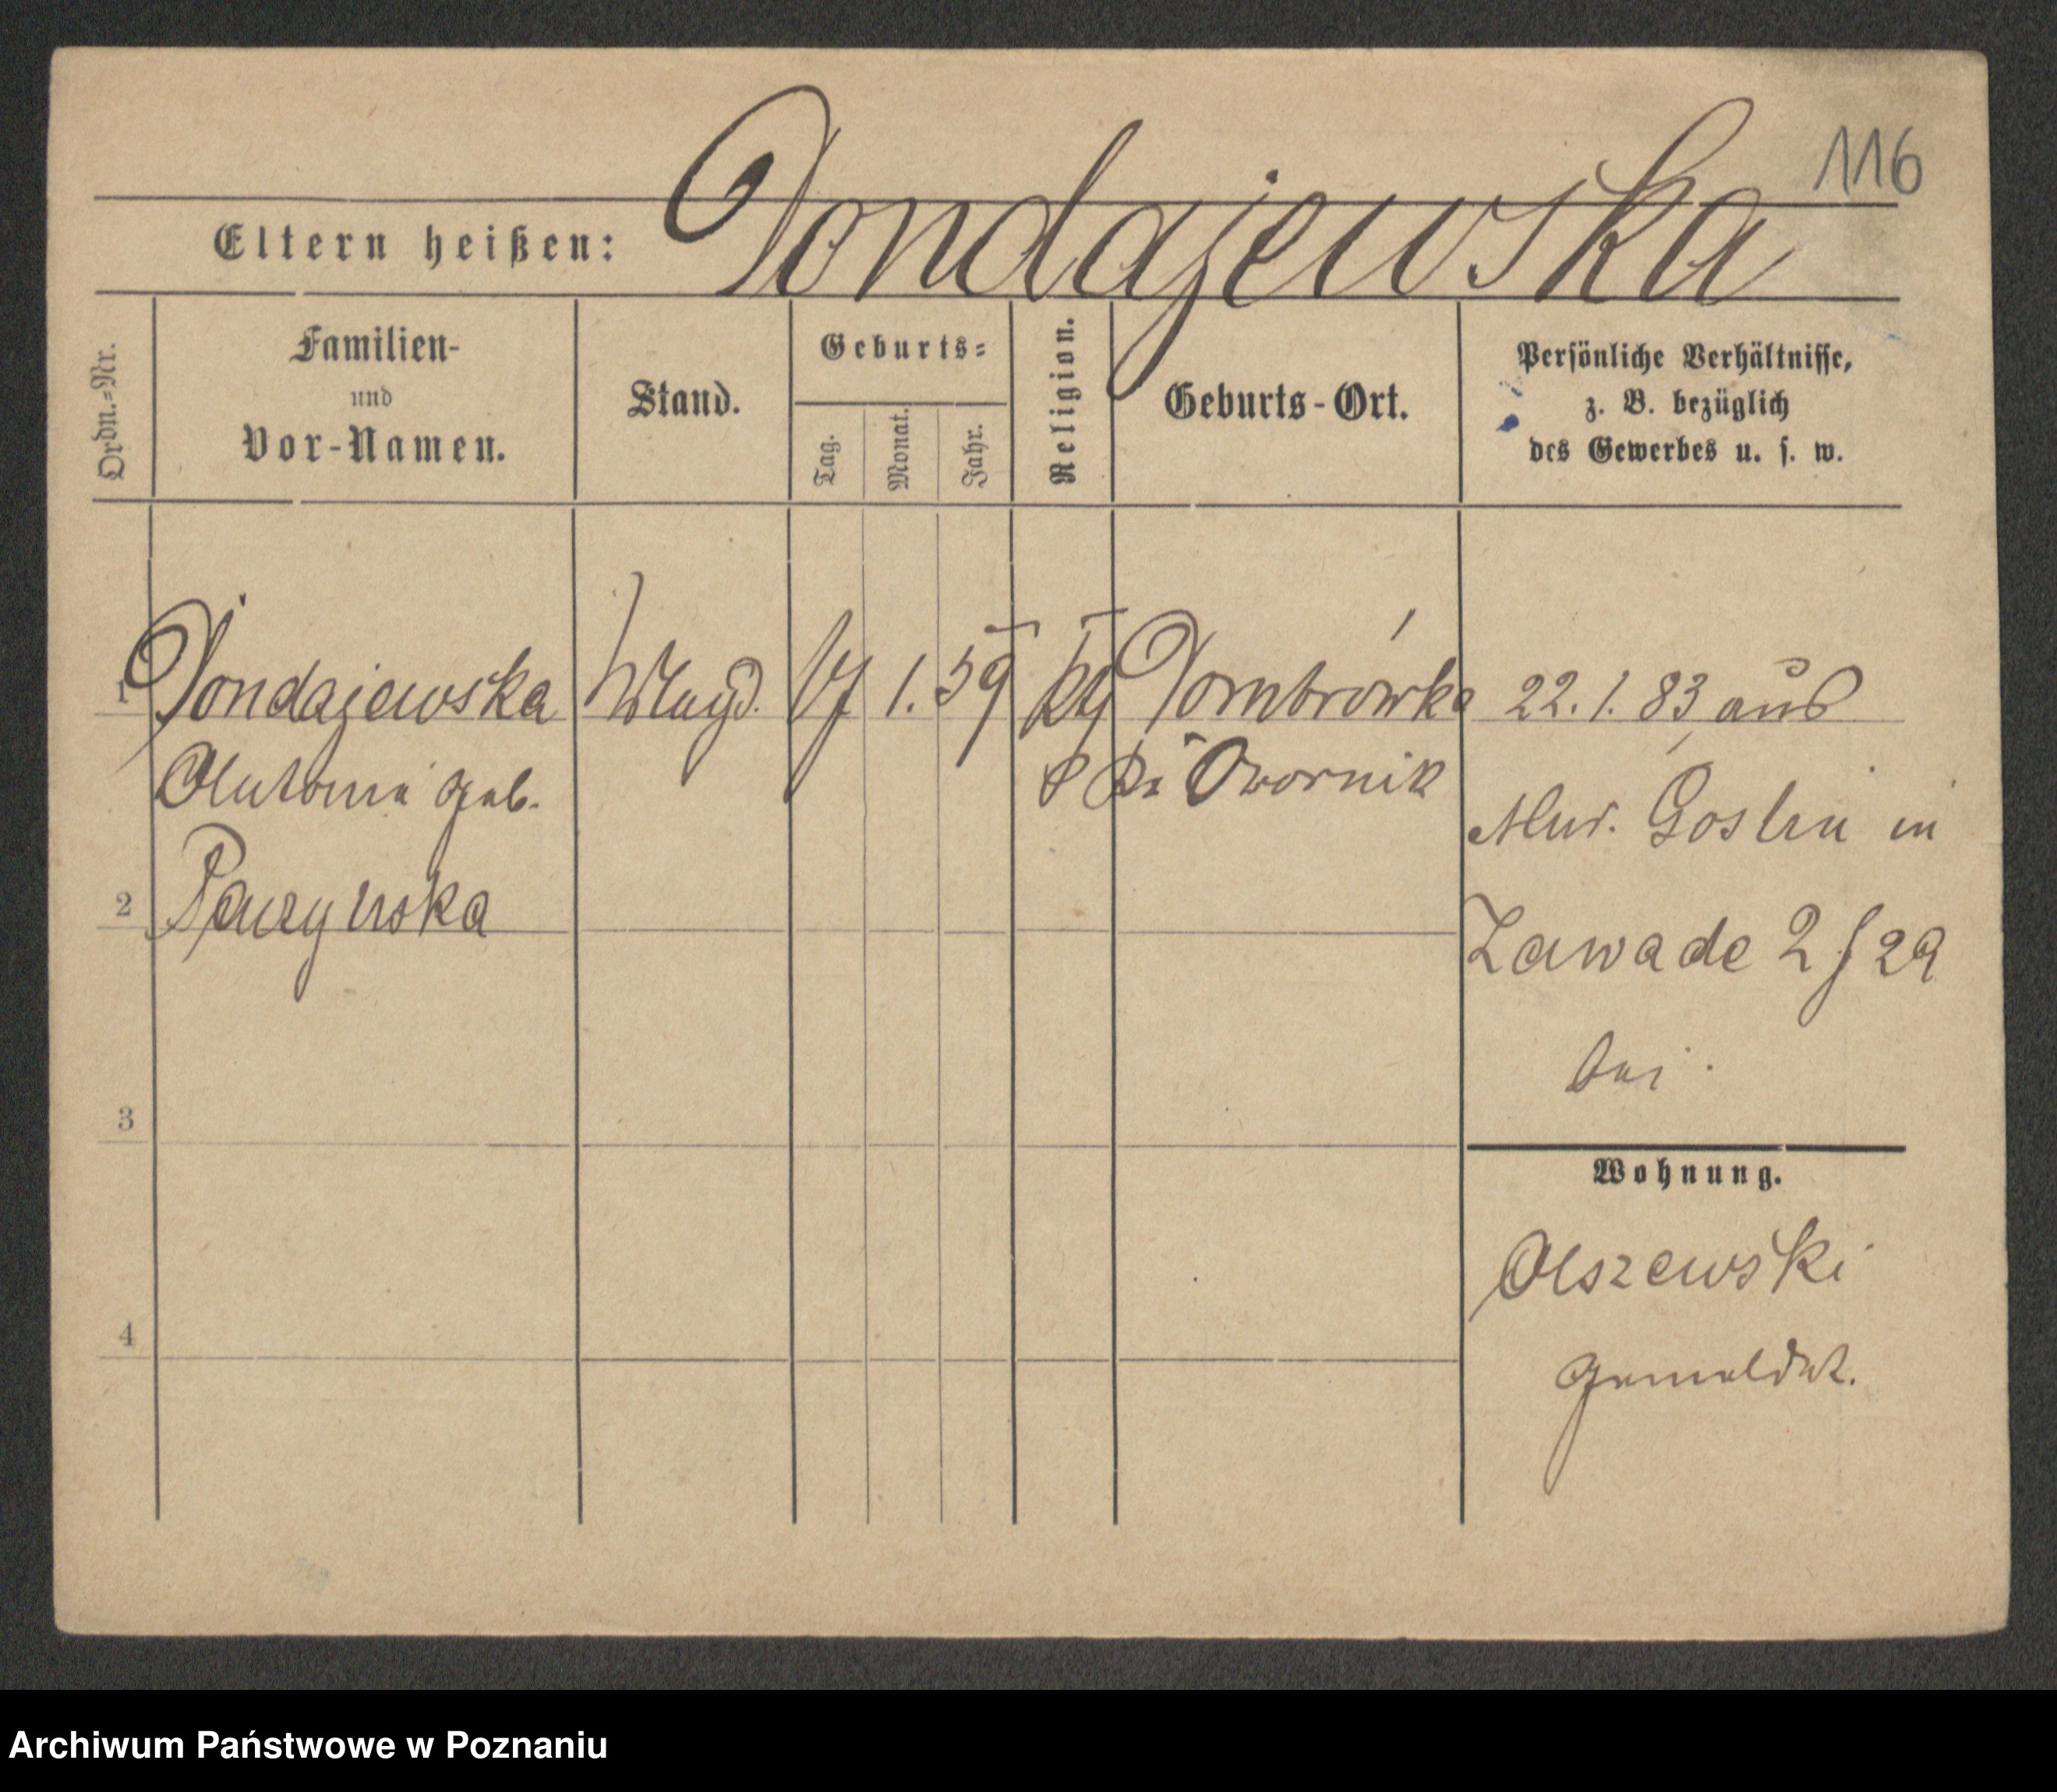 116
Eltern heißen: Dondajewska
Ordn.-Nr.
Familien-
und
Vor-Namen.
Stand.
Geburts-
Tag.
Monat.
Jahr.
Religion.
Geburts-Ort.
Persönliche Verhältnisse,
z. B. bezüglich
des Gewerbes u. s. w.
1 Dondajewska 1. 59 kth Dombrówka 22. 1. 83 aus
Antonie geb. Owornik
Mur. Goslin in
2 Paczynska
Zawade 2/29
bei
3
Wohnung.
Olszewski
4
gemeldet.
Archiwum Państwowe w Poznaniu